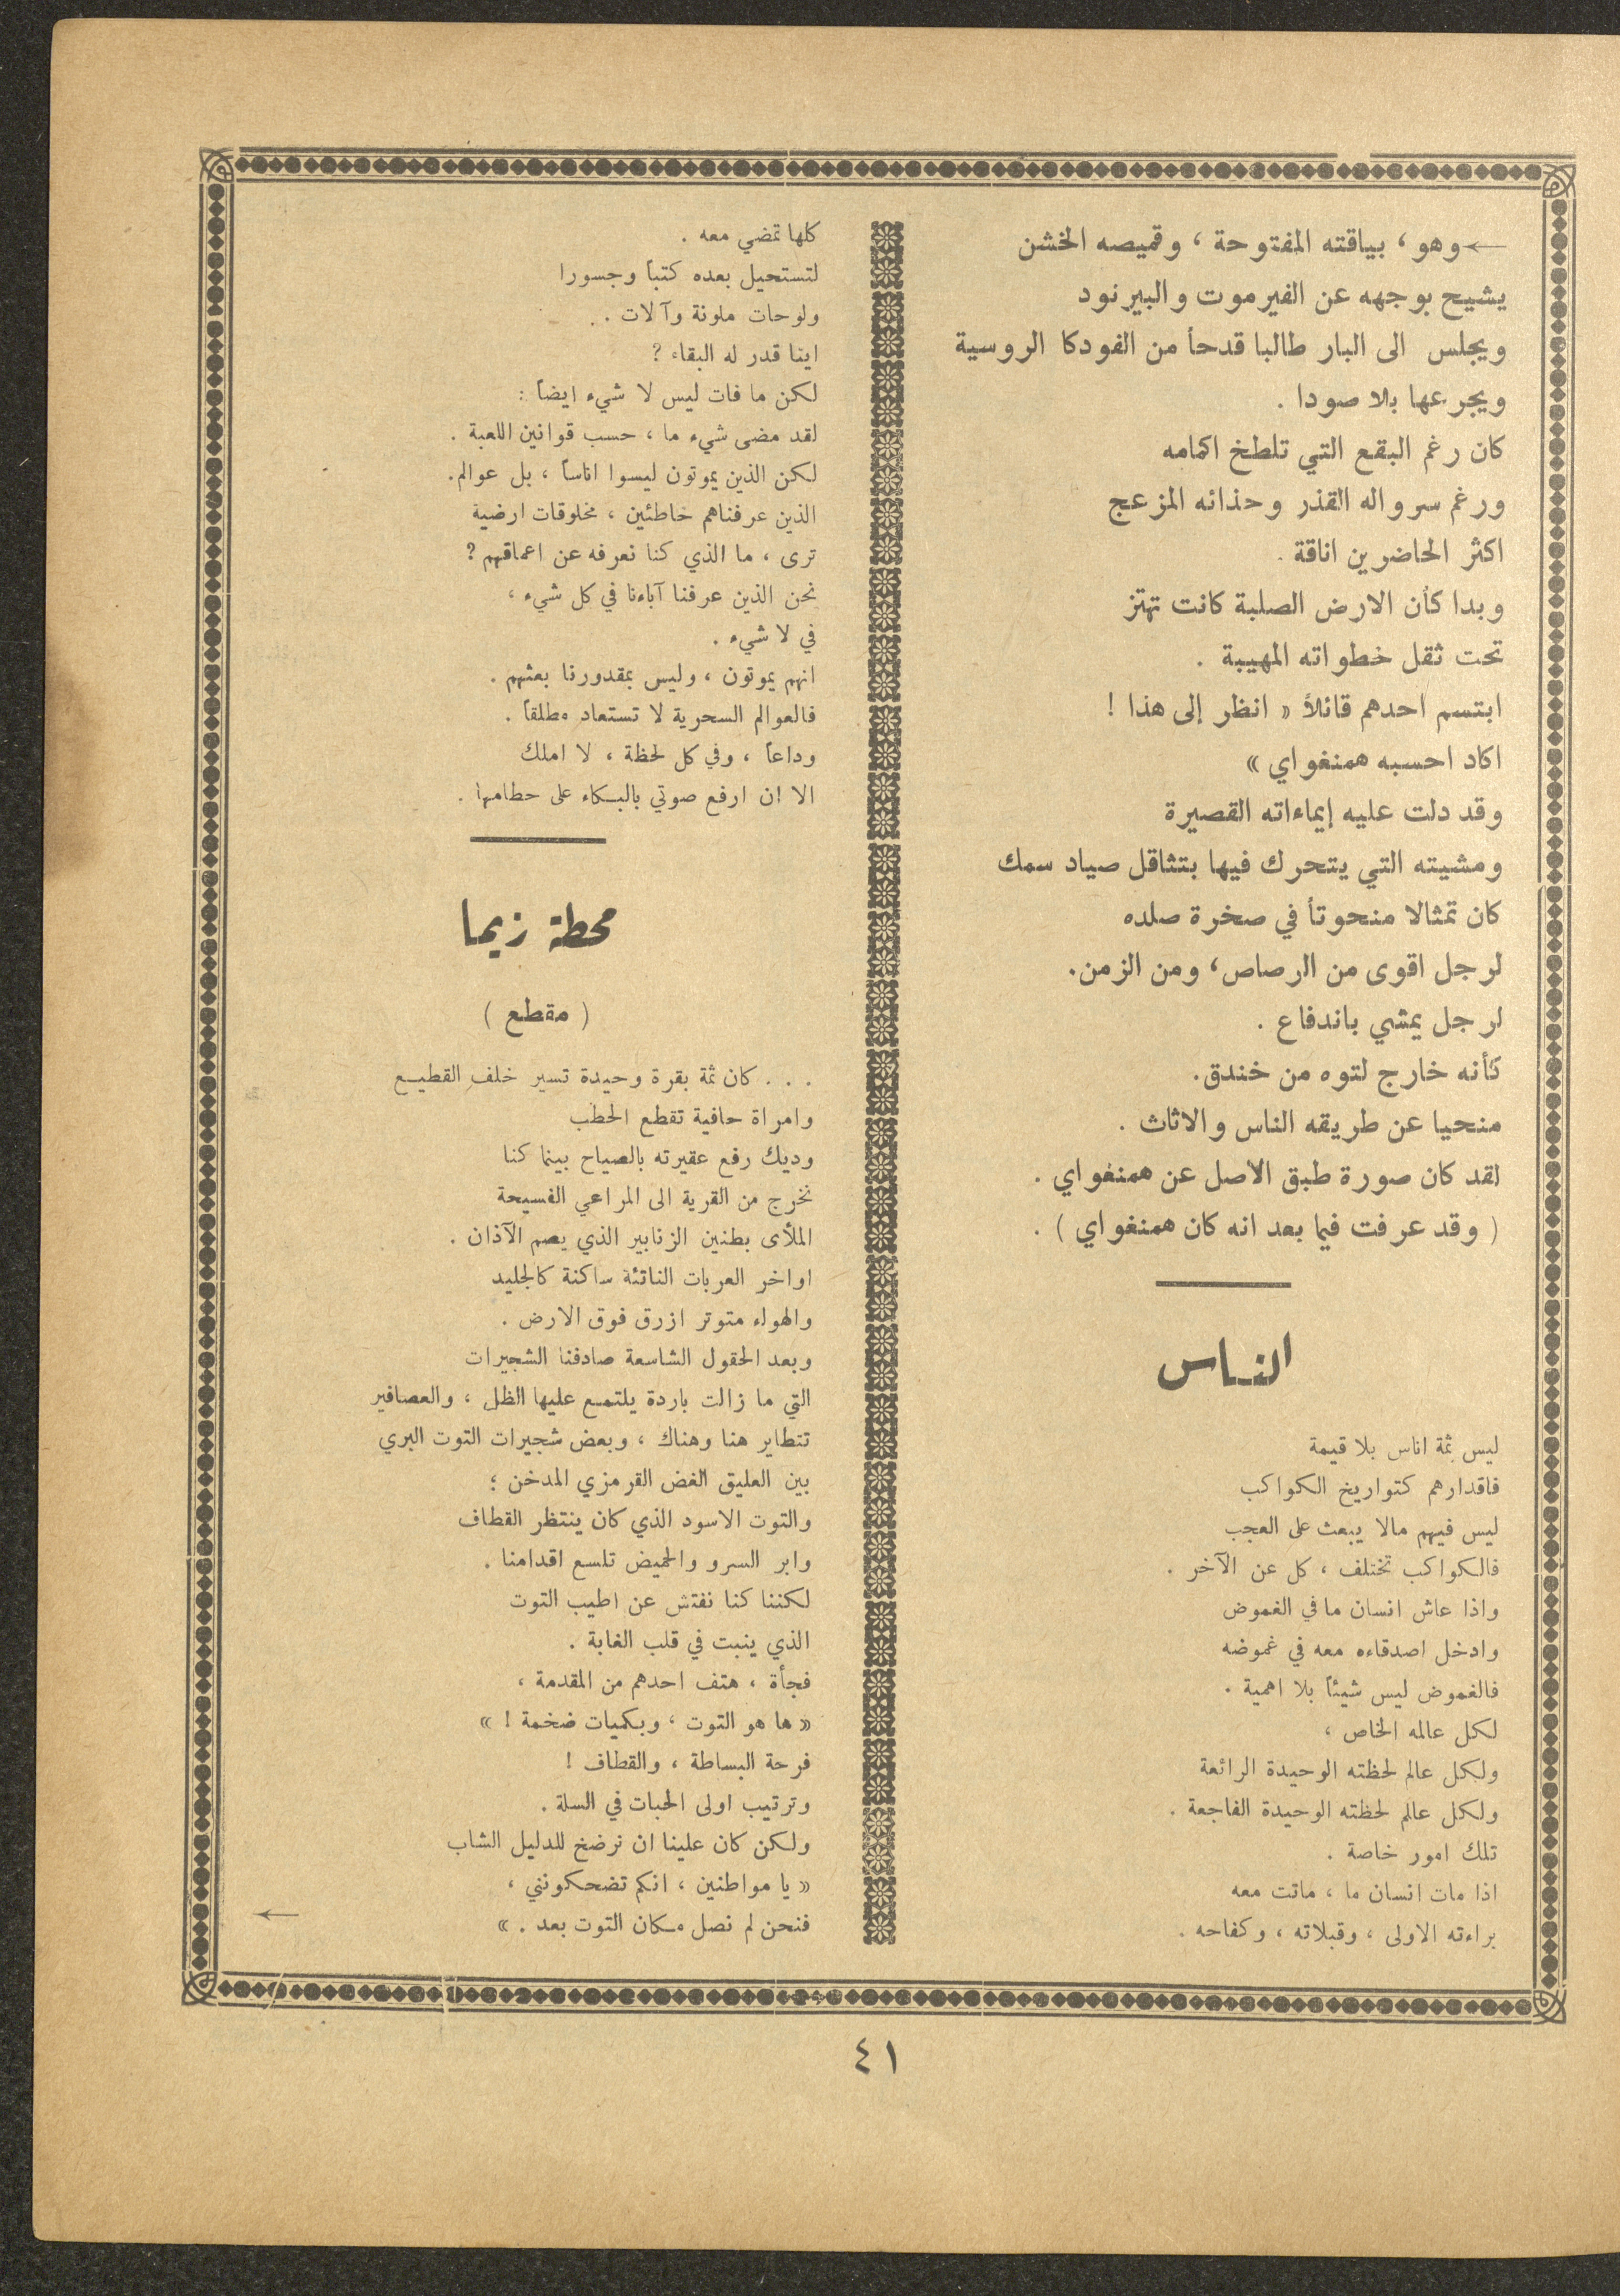 ←وهو ، بياقته المفتوحة ، وقميصه الخشن
يشيح بوجهه عن الفيرموت والبيرنود
ويجلس الى البار طالبا قدحاً من الفودكا الروسية
ويجرعها بلا صودا .
كان رغم البقع التي تلطخ اكمامه
ورغم سرواله القذر وحذائه المزعج
اكثر الحاضرين اناقة .
وبدا كأن الارض الصلبة كانت تهتز
تحت ثقل خطواته المهيبة .
ابتسم احدهم قائلاً « انظر إلى هذا !
اكاد احسبه همنغواي »
وقد دلت عليه إيماءاته القصيرة
ومشيته التي يتحرك فيها بتثاقل صياد سمك
كان تمثالا منحوتاً في صخرة صلده
لرجل اقوى من الرصاص ، ومن الزمن .
لرجل يمشي باندفاع .
كأنه خارج لتوه من خندق .
منحيا عن طريقه الناس والاثاث .
لقد كان صورة طبق الاصل عن همنغواي .
( وقد عرفت فيما بعد انه كان همنغواي ) .
الناس
ليس ثمة اناس بلا قيمة
فاقدارهم كتواريخ الكواكب
ليس فيهم مالا يبعث على العجب
فالكواكب تختلف ، كل عن الآخر .
واذا عاش انسان ما في الغموض
وادخل اصدقاءه معه في غموضه
فالغموض ليس شيئاً بلا اهمية .
لكل عالمه الخاص ،
ولكل عالم لحظته الوحيدة الرائعة
ولكل عالم لحظته الوحيدة الفاجعة .
تلك امور خاصة .
اذا مات انسان ما ، ماتت معه
براءته الاولى ، وقبلاته ، وكفاحه .
كلها تمضي معه .
لتستحيل بعده كتباً وجسورا
ولوحات ملونة وآلات . .
اينا قدر له البقاء ?
لكن ما فات ليس لا شيء ايضاً :
لقد مضى شيء ما ، حسب قوانين اللعبة .
لكن الذين يموتون ليسوا اناساً ، بل عوالم .
الذين عرفناهم خاطئين ، مخلوقات ارضية
ترى ، ما الذي كنا نعرفه عن اعماقهم ?
نحن الذين عرفنا آباءنا في كل شيء ،
في لا شيء .
انهم يموتون ، وليس بمقدورنا بعثهم .
فالعوالم السحرية لا تستعاد مطلقاً .
وداعاً ، وفي كل لحظة ، لا املك
الا ان ارفع صوتي بالبكاء على حطامها .
محطة زيما
( مقطع )
. . . كان ثمة بقرة وحيدة تسير خلف القطيع
وامراة حافية تقطع الحطب
وديك رفع عقيرته بالصياح بينما كنا
نخرج من القرية الى المراعي الفسيحة
الملأى بطنين الزنابير الذي يصم الآذان .
اواخر العربات الناتئة ساكنة كالجليد
والهواء متوتر ازرق فوق الارض .
وبعد الحقول الشاسعة صادفنا الشجيرات
التي ما زالت باردة يلتمع عليها الظل ، والعصافير
تتطاير هنا وهناك ، وبعض شجيرات التوت البري
بين العليق الغض القرمزي المدخن ؛
والتوت الاسود الذي كان ينتظر القطاف
وابر السرو والحميض تلسع اقدامنا .
لكننا كنا نفتش عن اطيب التوت
الذي ينبت في قلب الغابة .
فجأة ، هتف احدهم من المقدمة ،
« ها هو التوت ، وبكميات ضخمة ! »
فرحة البساطة ، والقطاف !
وترتيب اولى الحبات في السلة .
ولكن كان علينا ان نرضخ للدليل الشاب
« يا مواطنين ، انكم تضحكونني ،
فنحن لم نصل مكان التوت بعد . »
←
٤١